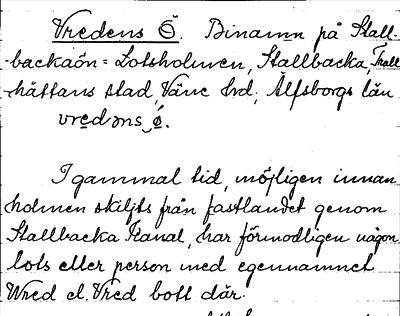 Vredens Ö. Binamn på Stall-
backaön = Lotsholmen, Stallbacka, Troll-
hättans stad, Väne hd, Älfsborgs län
vredəns ö.
I gammal tid, möjligen innan
holmen skiljts från fastlandet genom
Stallbacka Kanal, har förmodligen någon
lots eller person med egennamnet
Wred el. Vred bott där.